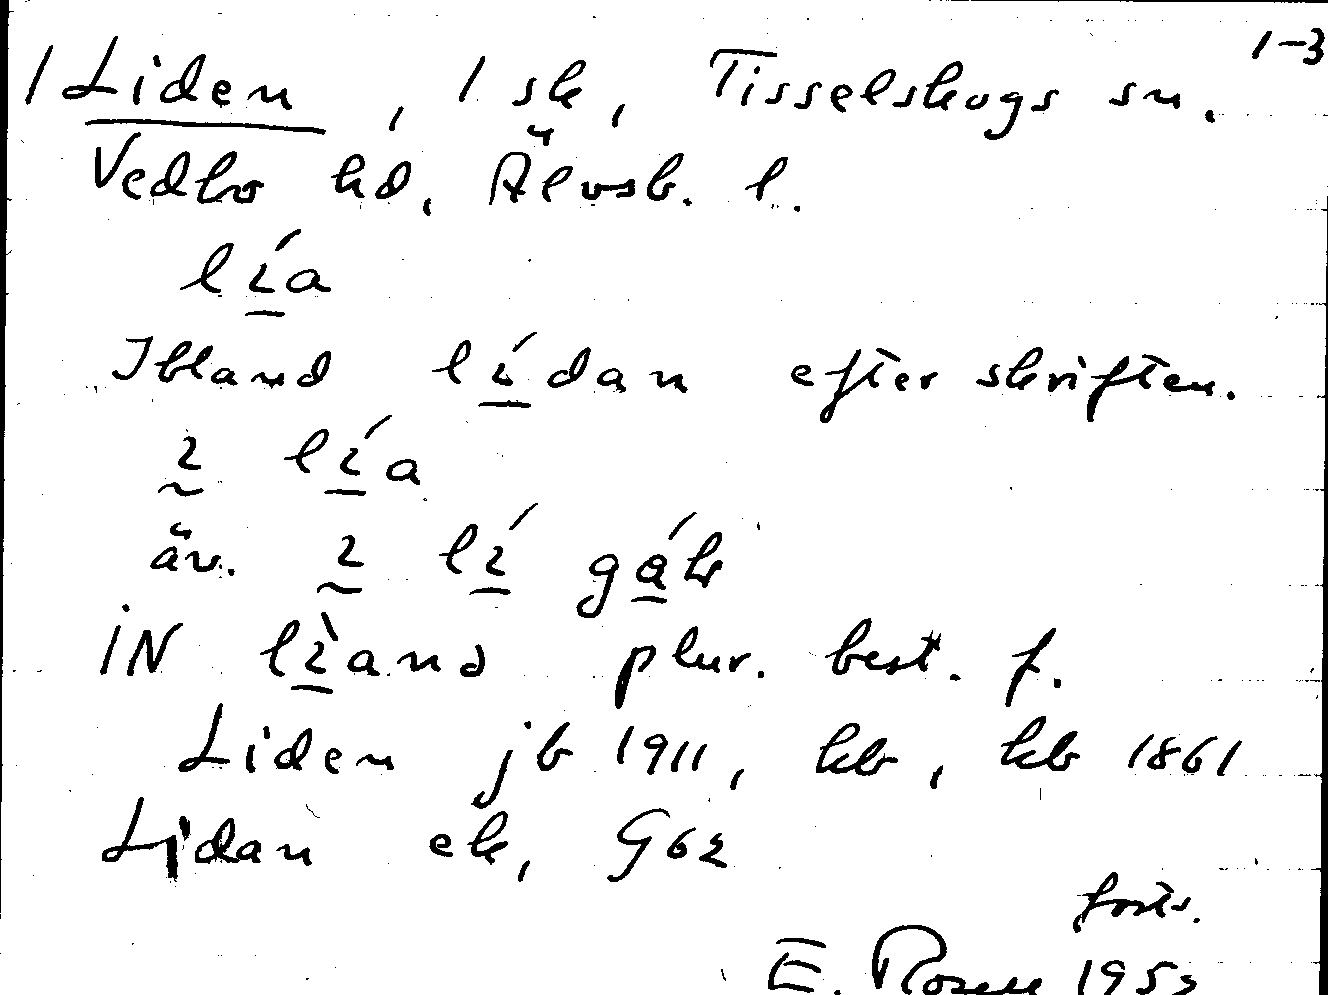 1-3
1 Liden, 1 sk, Tisselskogs sn.
Vedbo hd, Älvsb. l.
lı̱́a
Ibland lı̱́dan efter skriften.
ı̰ lı̱́a
äv. ı̰ lı̱́ gá̱k
iN lı̱̀and plur. best. f.
Liden jb 1911, kb, kb 1861
Lidan ek, G62
forts.
E. Rosell 195